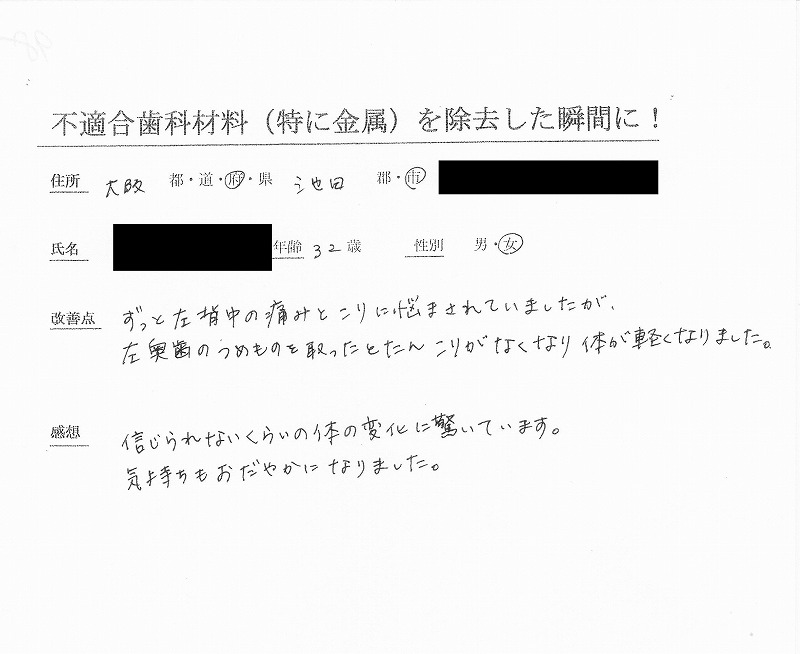 不適合歯科材料（特に金属）を除去した瞬間に！
住所 大阪 都・道・府・県 池田 郡・市
氏名 年齢 32 歳 性別 男・女
改善点 ずっと左背中の痛みとこりに悩まされていましたが、
左奥歯のうめものを取ったとたん こりがなくなり 体が軽くなりました。
感想 信じられないくらいの体の変化に驚いています。
気持ちもおだやかになりました。